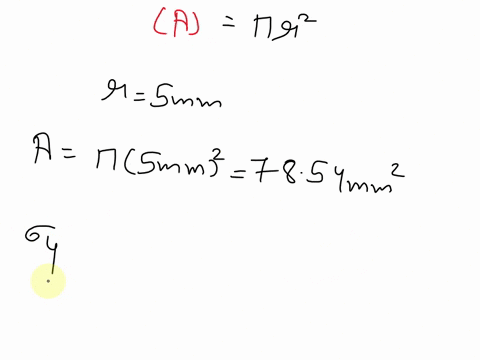 (A) = πr²
r = 5mm
A = π(5mm)² = 78.54mm²
σy